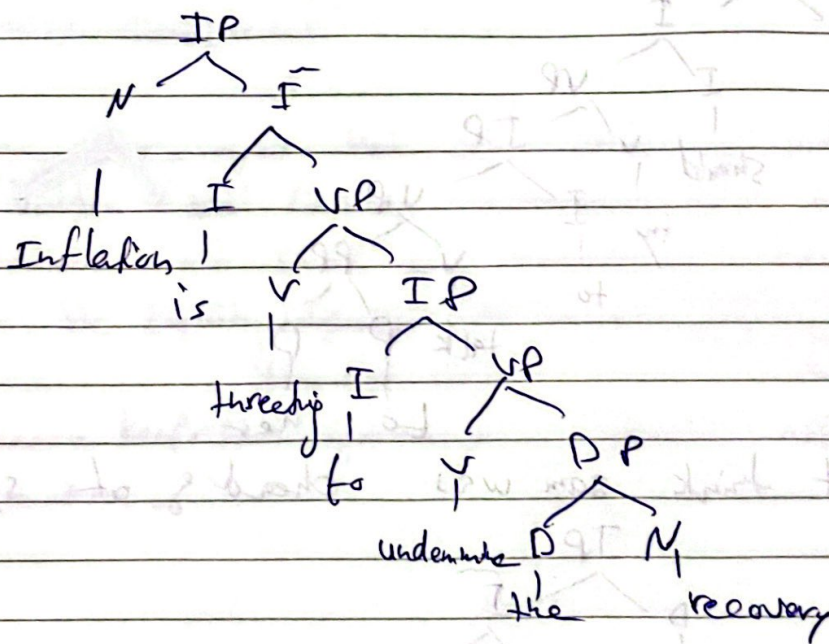 IP
N Ī
I VP
Inflation
is V IP
threeting I VP
to V DP
undermine D N
the recovery